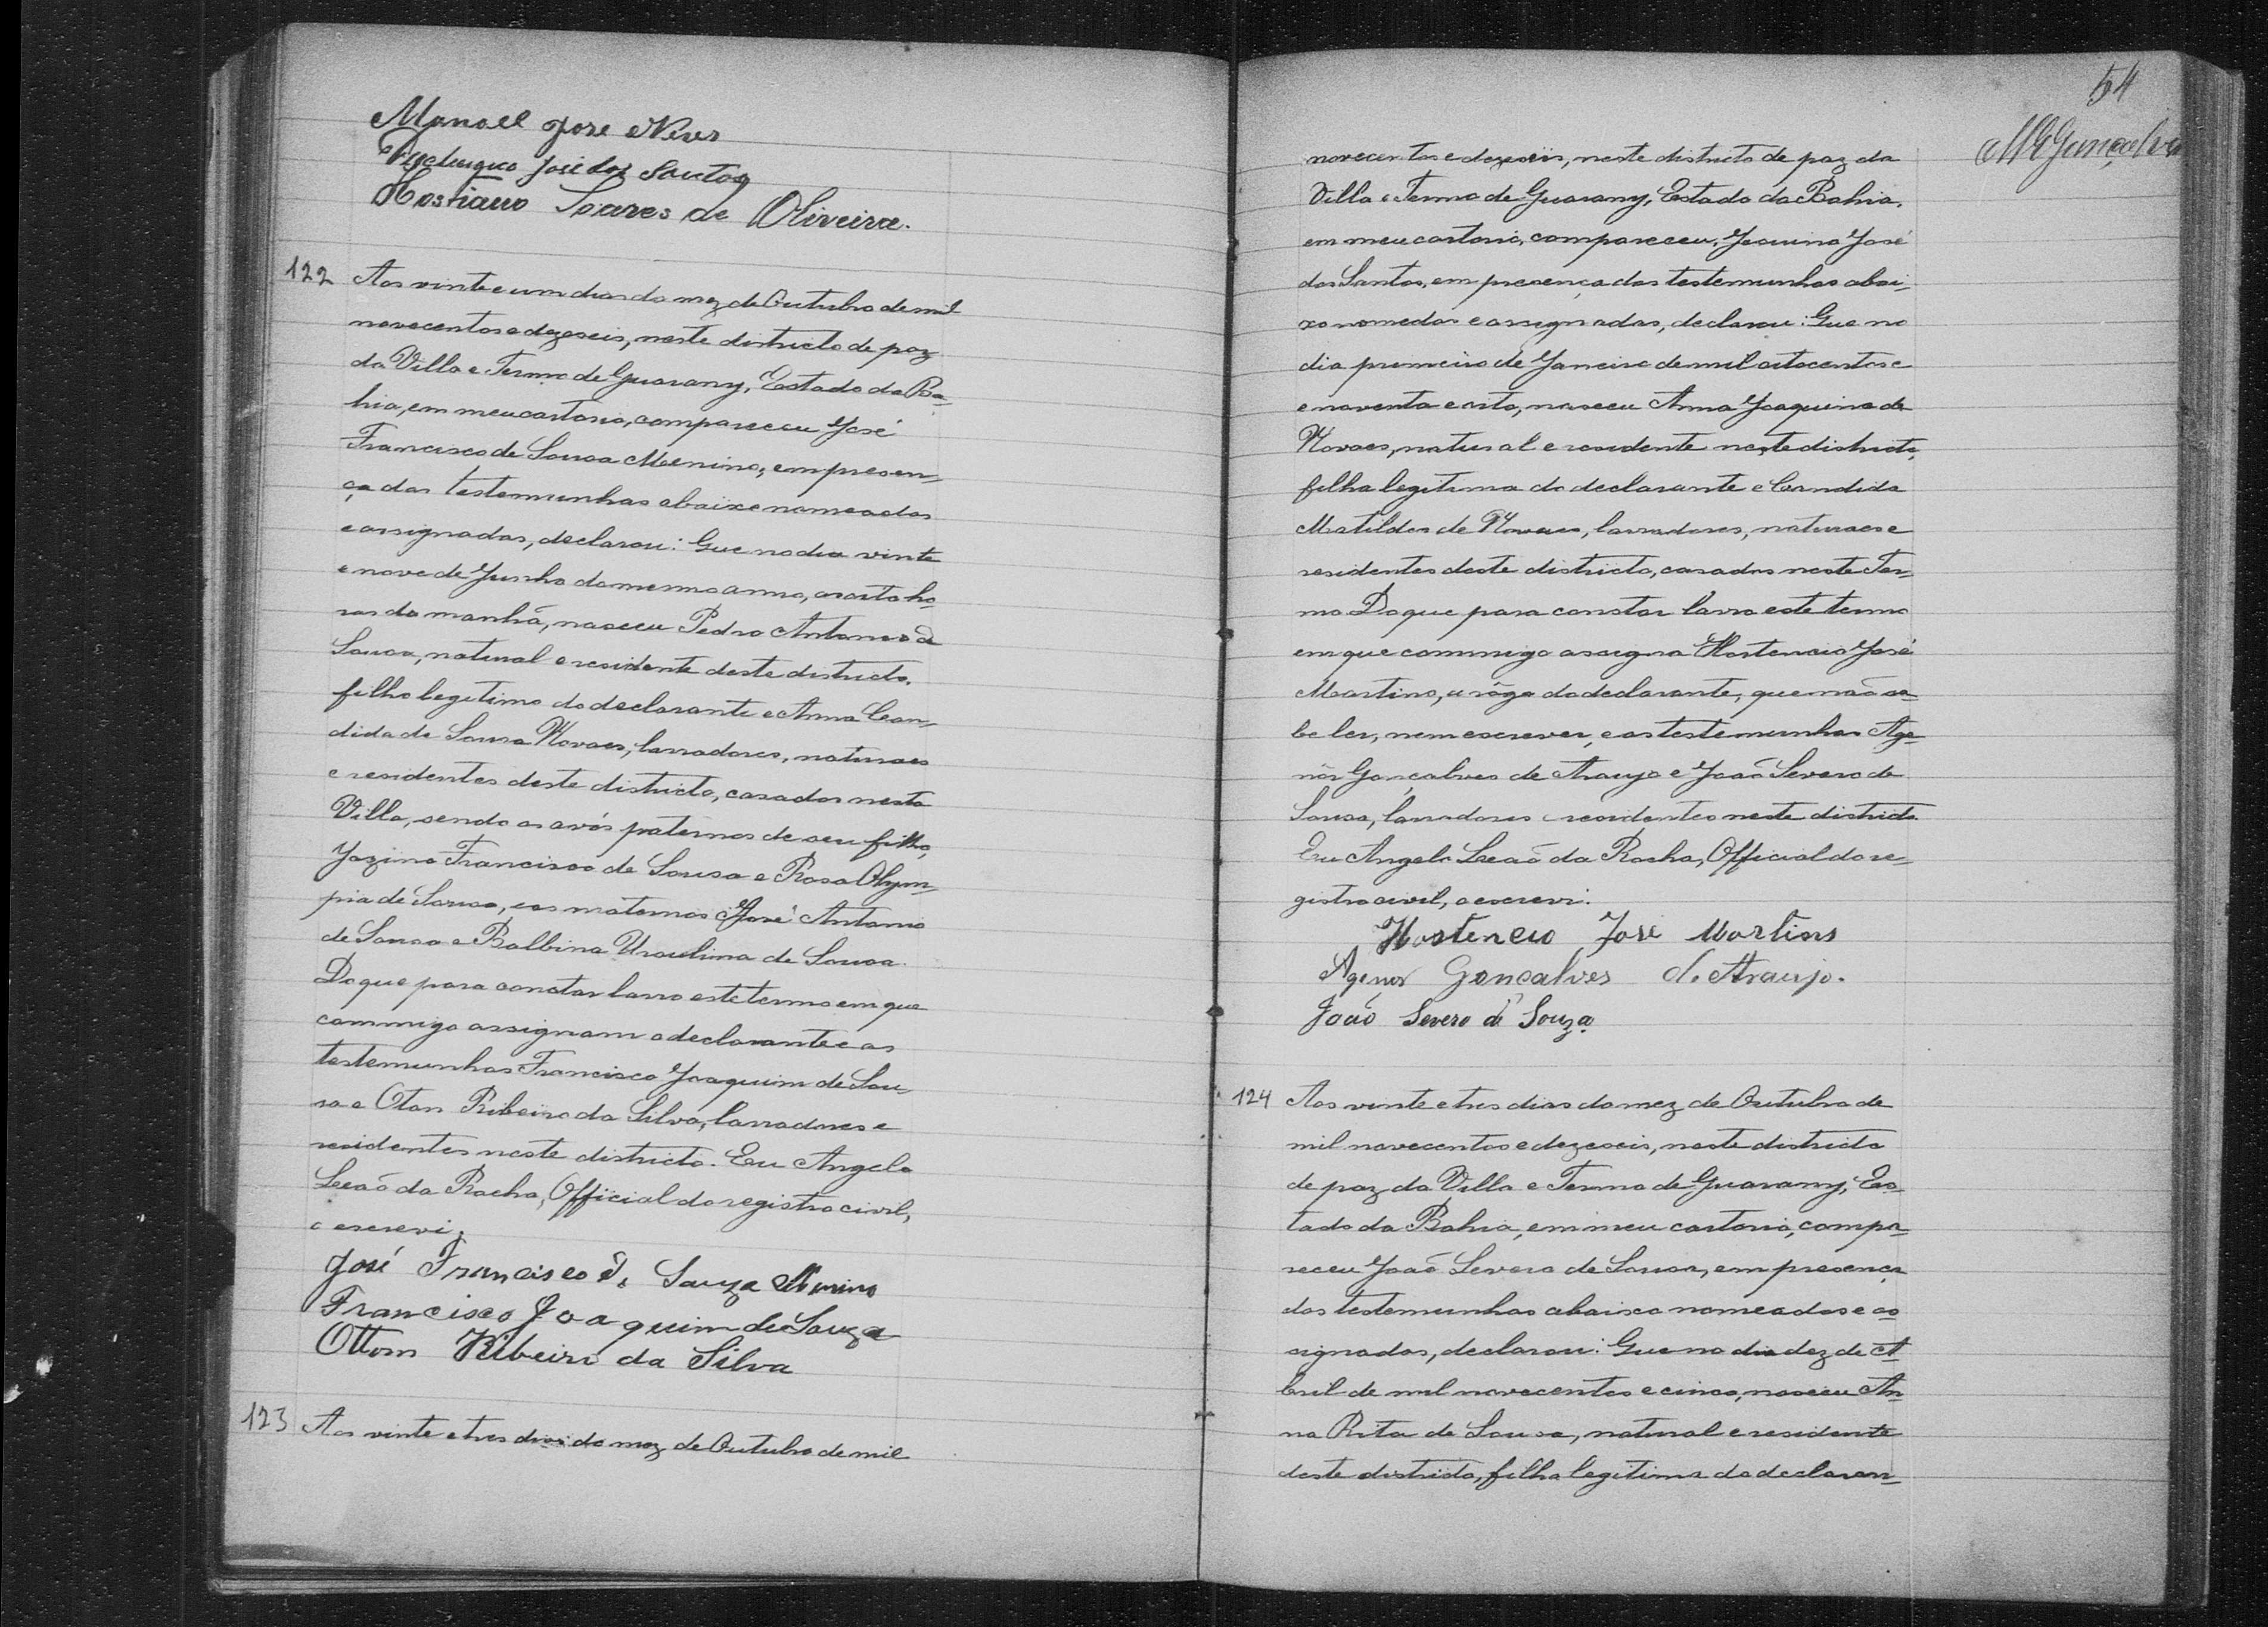 Manoel Jose Neves
José dos Santos
Soares de Oliveira.
122 Aos vinte e um dias do mez de Outubro de mil
novecentos e dezeseis, neste districto de paz
da Villa e Termo de Guarany, Estado da Ba-
hia, em meu cartorio, compareceu José
Francisco de Sousa Menino, em presen-
ça das testemunhas abaixo nomeadas
e assignadas, declarou: Que no dia vinte
e nove de Junho do mesmo anno, as oito ho-
ras da manhã, nasceu Pedro Antonio de
Sousa, natural e residente deste districto,
filho legitimo do declarante e Anna Can-
dida de Sousa Novaes, lavradores, naturaes
e residentes deste districto, casados nesta
Villa, sendo os avós paternos de seu filho,
Jozino Francisco de Sousa e Rosa Olym-
pia de Sousa, e os maternos José Antonio
de Sousa e Balbina Ursulina de Sousa.
Do que para constar lavro este termo em que
commigo assignam o declarante e as
testemunhas Francisco Joaquim de Sou-
sa e Oton Ribeiro da Silva, lavradores e
residentes neste districto. Eu Angelo
Leaõ da Rocha, Official do registro civil,
o escrevi.
José Francisco de Souza Menino
Francisco Joaquim de Souza
Ottom Ribeiro da Silva
123 Aos vinte e tres dias do mez de Outubro de mil
54
MGonçalves
novecentos e dezeseis, neste districto de paz da
Villa e Termo de Guarany, Estado da Bahia,
em meu cartorio, compareceu, José
dos Santos, em presença das testemunhas abai-
xo nomedas e assignadas, declarou: Que no
dia primeiro de Janeiro de mil oitocentos e
e noventa e oito, nasceu Anna Joaquina de
Novaes, natural e residente neste districto,
filha legitima do declarante e Candida
Matildes de Novaes, lavradores, naturaes e
residentes deste districto, casados neste Ter-
mo Do que para constar lavro este termo
em que commigo assigna Hortencio José
Martins, a rôgo do declarante, que não sa-
be ler, nem escrever, e as testemunhas Age-
nôr Gonçalves de Araujo e Joaõ Severo de
Sousa, lavradores e residentes neste districto.
Eu Angelo Leaõ da Rocha, Official do re-
gistro civil, o escrevi.
Hortencio José Martins
Agenor Gonçalves de Araujo.
João Severo de Souza
124 Aos vinte e tres dias do mez de Outubro de
mil novecentos e dezeseis, neste districto
de paz da Villa e Termo de Guarany, Es-
tado da Bahia, em meu cartorio, compa-
receu Joaõ Severo de Sousa, em presença
das testemunhas abaixo nomeadas e as-
signadas, declarou: Que no dia dez de A-
bril de mil novecentos e cinco, nasceu An-
na Rita de Sousa, natural e residente
deste districto, filha legitima do declaran-